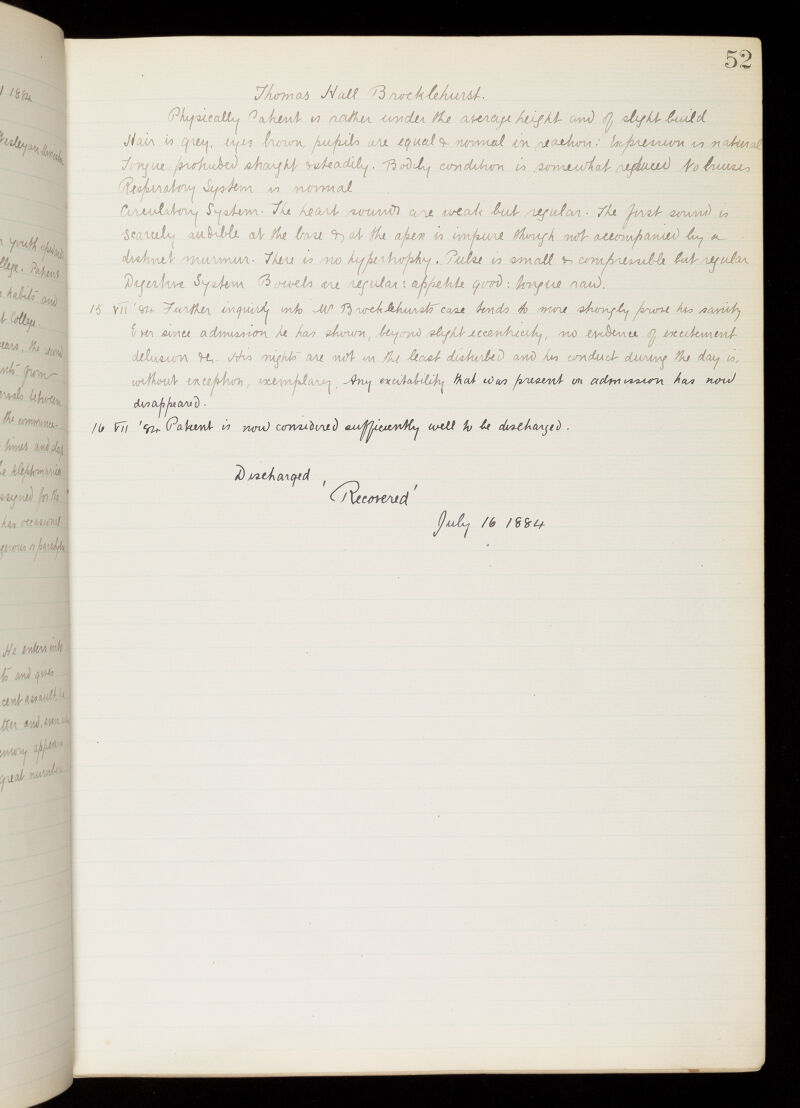 52
Thomas Hall Brocklehurst.
Physically Patient is rather under the average height and of slight build
Hair is grey, eyes brown, pupils are equal & normal in reaction: Expression is natural
Tongue protruded straight & steadily. Bodily condition is somewhat reduced No bruises
Respiratory System is normal
Circulatory System. The heart sounds are weak but regular. The first sound is
scarcely audible at the base & at the apex is impure though not accompanied by a
distinct murmur. There is no hypertrophy. Pulse is small & compressible but regular
Digestive System Bowels are regular: appetite good: tongue raw.
15 VII '84 Further inquiry into Mr Brocklehursts case tends to more strongly prove his sanity
Ever since admission he has shown, beyond slight eccentricity, no evidence of excitement
delusion &c. His nights are not in the least disturbed and his conduct during the day is,
without exception, exemplary. Any excitability that was present on admission has now
disappeared.
16 VII '84 Patient is now considered sufficiently well to be discharged.
Discharged
'Recovered'
July 16 1884
1884
Wesleyan
youth
College. Patient
habits and
t College.
years, the second
from
intervals between
the commence-
times and days
the kleptomania
assigned for the
has occasional
He enters into
and gives
recent assault, he
and, even
memory appears
great number